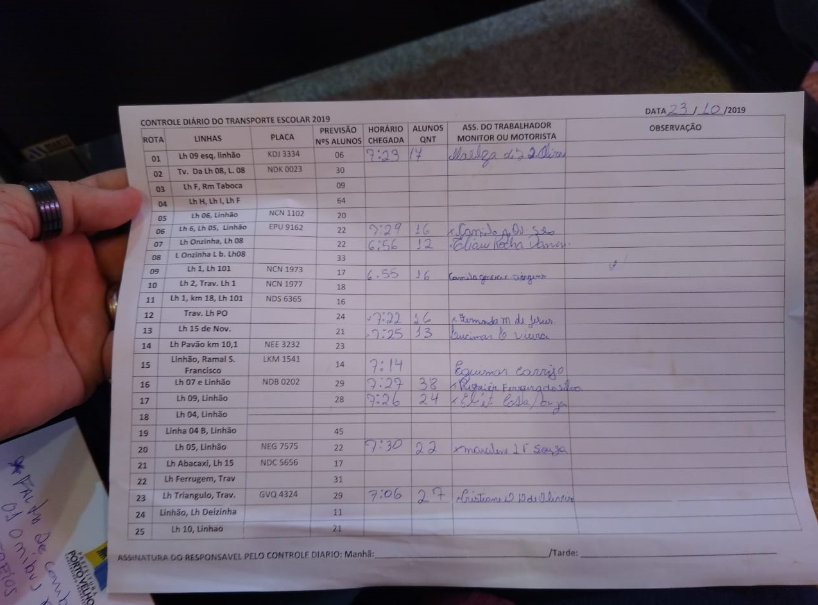 CONTROLE DIÁRIO DO TRANSPORTE ESCOLAR 2019
DATA 23 / 10 /2019
ROTA LINHAS PLACA PREVISÃO NºS ALUNOS HORÁRIO CHEGADA ALUNOS QNT ASS. DO TRABALHADOR MONITOR OU MOTORISTA OBSERVAÇÃO
01 Lh 09 esq, linhão KDJ 3334 06 7:23 17
02 Tv. Da Lh 08, L. 08 NDK 0023 30
03 Lh F, Rm Taboca 09
04 Lh H, Lh I, Lh F 64
05 Lh 06, Linhão NCN 1102 20
06 Lh 6, Lh 05, Linhão EPU 9162 22 7:29 16
07 Lh Onzinha, Lh 08 22 6:56 12 Rocha
08 L Onzinha L b. Lh08 33
09 Lh 1, Lh 101 NCN 1973 17 6:55 16
10 Lh 1, Trav. Lh 1 NCN 1977 18
11 Lh 1, km 18, Lh 101 NDS 6365 16
12 Trav. Lh PO 24 7:22 16 x Fernanda M de Jesus
13 Lh 15 de Nov. 21 7:25 13 Vieira
14 Lh Pavão km 10,1 NEE 3232 23
15 Linhão, Ramal S. Francisco LKM 1541 14 7:14
16 Lh 07 e Linhão NDB 0202 29 7:27 38
17 Lh 09, Linhão 28 7:26 24
18 Lh 04, Linhão
19 Linha 04 B, Linhão 45
20 Lh 05, Linhão NEG 7575 22 7:30 22 Souza
21 Lh Abacaxi, Lh 15 NDC 5656 17
22 Lh Ferrugem, Trav 31
23 Lh Triangulo, Trav. GVQ 4324 29 7:06 27 Cristiane
24 Linhão, Lh Deizinha 11
25 Lh 10, Linhao 21
ASSINATURA DO RESPONSAVEL PELO CONTROLE DIARIO: Manhã: /Tarde:
* Falta de
os ônibus
PREFEITURA
PORTO VELHO